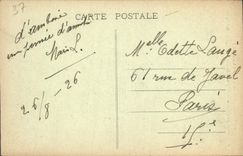 37
CARTE POSTALE
d'amboise
une pensée d'amitié
Marie L.
26/8-26
Mlle Odette Laugé
61 rue de Javel
Paris
15e